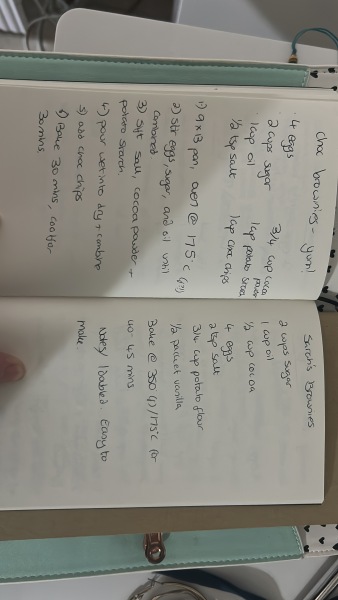 choc brownies - yum!
4 eggs
2 cups sugar
1 cup oil
1/2 tsp salt
3/4 cup cocoa
powder
1 cup potato starch
1 cup choc chips
1) 9x13 pan, oven @ 175°c
2) stir eggs, sugar, and oil until
combined
3) sift salt, cocoa powder +
potato starch.
4) pour wet into dry + combine
5) add choc chips
6) Bake 30 mins, cool for
30 mins.
Sarah's Brownies
2 cups sugar
1 cup oil
cup cocoa
4 eggs
2 tsp salt
3/4 cup potato flour
1/2 packet vanilla
Bake @ 350 (f) / 175°c for
40-45 mins
Notes/ I doubled. Easy to
make